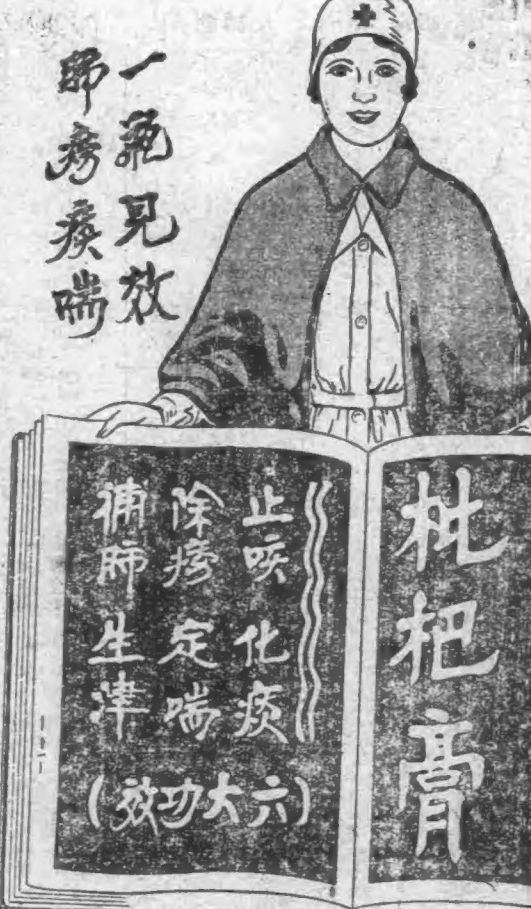 一瓶見效
肺癆痰喘
枇杷膏
止咳 化痰
除癆 定喘
補肺 生津
(六大功效)